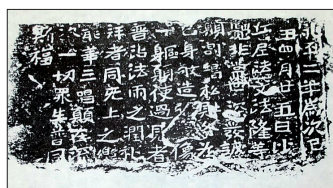 永平二年歲次己
丑四月廿五日比
丘尼法文法隆等
覺非常世深發誠
願割竭私財各為
己身敬造弥勒像
一軀願使過見者
普沾法雨之潤礼
拜者同无上之樂
龍華三唱願在流
次一切眾生普同
斯福